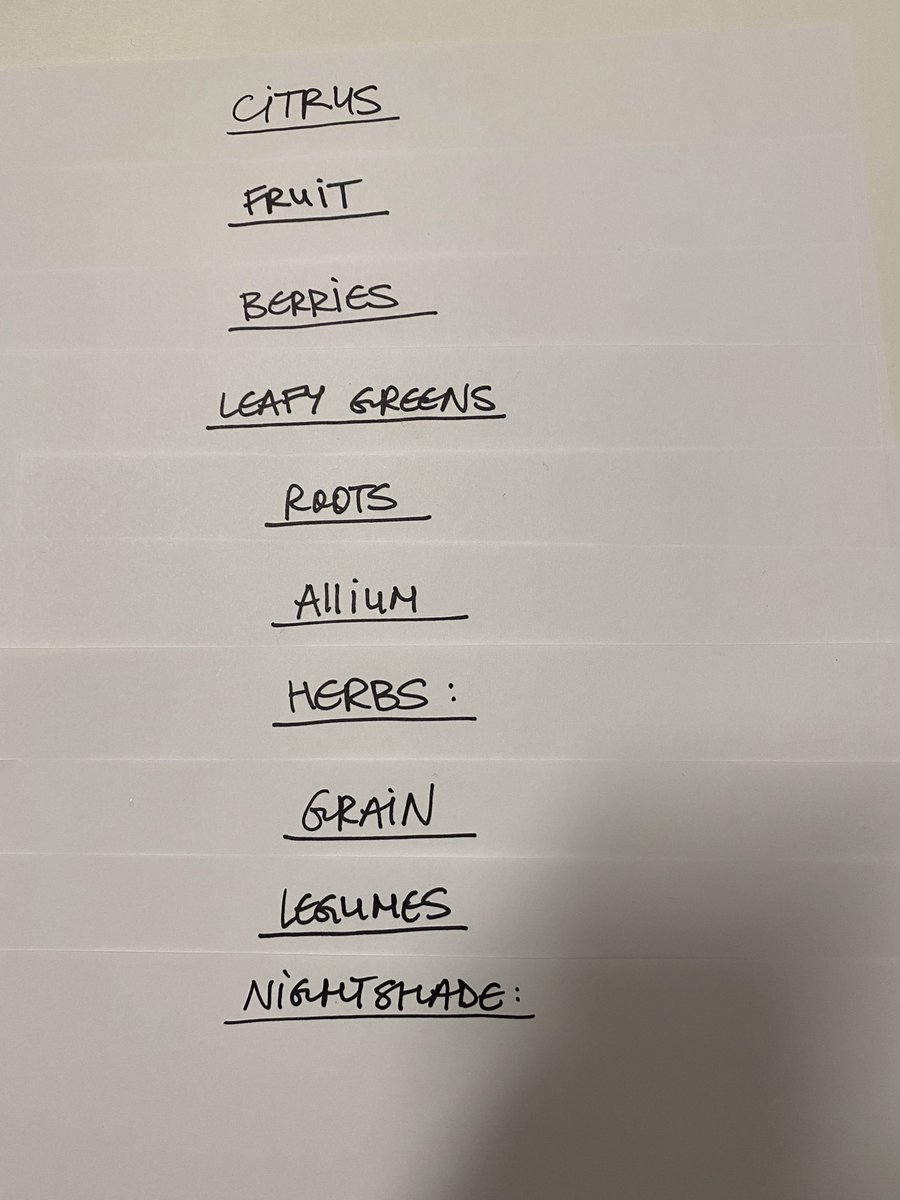 CITRUS
FRUIT
BERRIES
LEAFY GREENS
ROOTS
ALLIUM
HERBS :
GRAIN
LEGUMES
NIGHTSHADE: